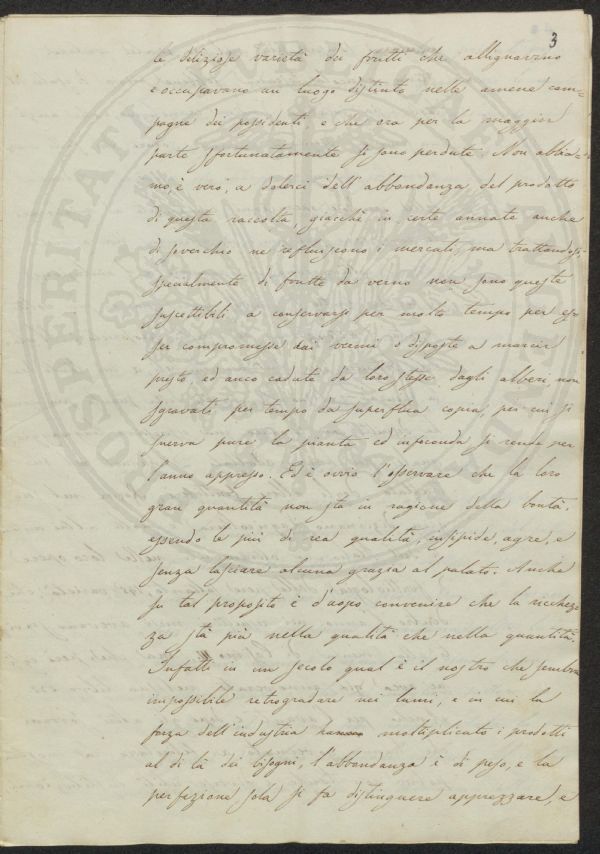 3
le deliziose varietà dei frutti che allignavano
e occupavano un luogo distinto nelle amene cam-
pagne dei possidenti, e che ora per la maggior
parte sfortunatamente si sono perdute. Non abbia-
mo, è vero, a dolerci dell'abbondanza del prodotto
di questa raccolta, giacchè in certe annate anche
di soverchio ne rifluiscono i mercati, ma trattandosi
specialmente di frutte da verno non sono queste
suscettibili a conservarsi per molto tempo per es-
ser compromesse dai vermi o disposte a marcir
presto, ed anco cadute da loro stesse dagli alberi non
sgravati per tempo da superflua copia, per cui si
snerva pure la pianta ed infeconda si rende per
l'anno appresso. Ed è ovvio l'osservare che la loro
gran quantità non sta in ragione della bontà,
essendo le più di rea qualità, insipide, agre, e
senza lasciare alcuna grazia al palato. Anche
su tal proposito è d'uopo convenire che la ricchez-
za sta più nella qualità che nella quantità.
Infatti in un secolo qual è il nostro che sembra
impossibile retrogradare nei lumi, e in cui la
forza dell'industria moltiplicato i prodotti
al di là dei bisogni, l'abbondanza è di peso, e la
perfezione sola si fa distinguere apprezzare, e
PROSPERITATI PUBLICAE